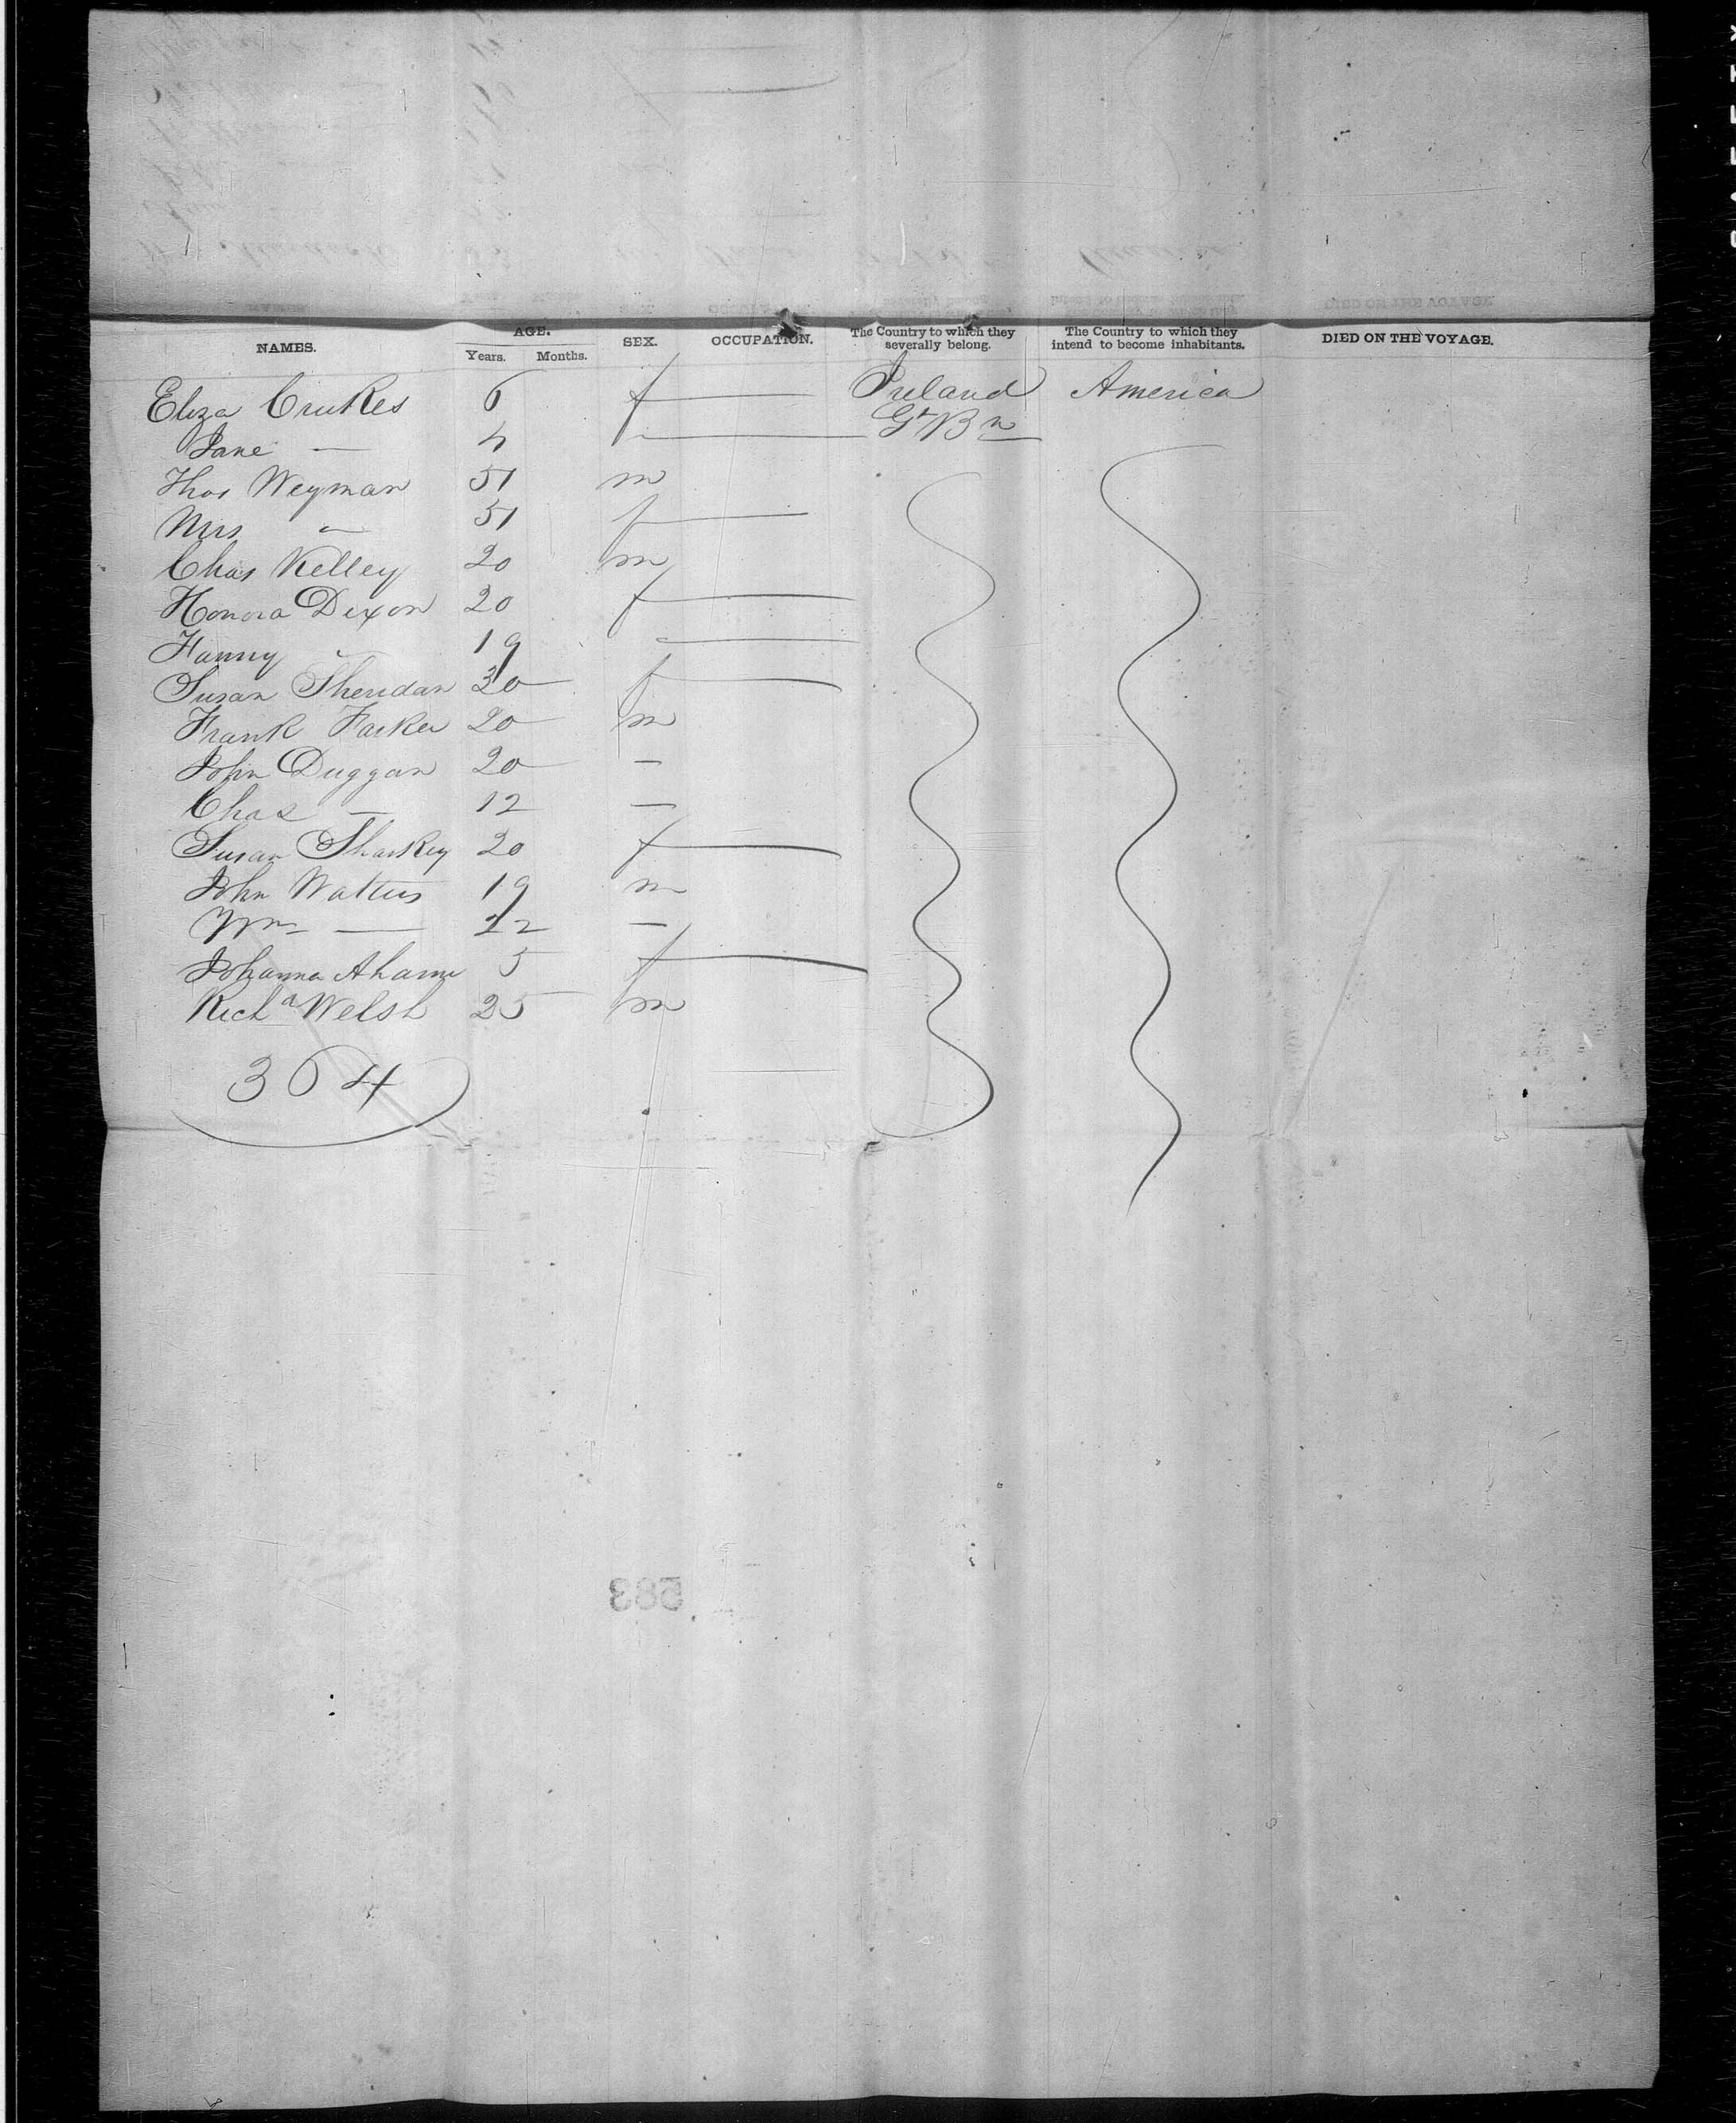 NAMES. AGE. SEX. OCCUPATION. The Country to which they severally belong. The Country to which they intend to become inhabitants. DIED ON THE VOYAGE.
Years. Months.
Eliza Crukes 6 f — Ireland America
Jane — 4 f — Gt Bn
Thos Weyman 51 m
Mrs — 51 f —
Chas Kelley 20 m
Honora Dixon 20 f —
Fanny 19 —
Susan Sheridan 30 f —
Frank Farker 20 m
John Duggan 20 —
Chas — 12 —
Susan Sharkey 20 f —
John Watters 19 m
Wm — 22 —
Johanna Aharne 5 f —
Richd Welsh 25 m
364
583